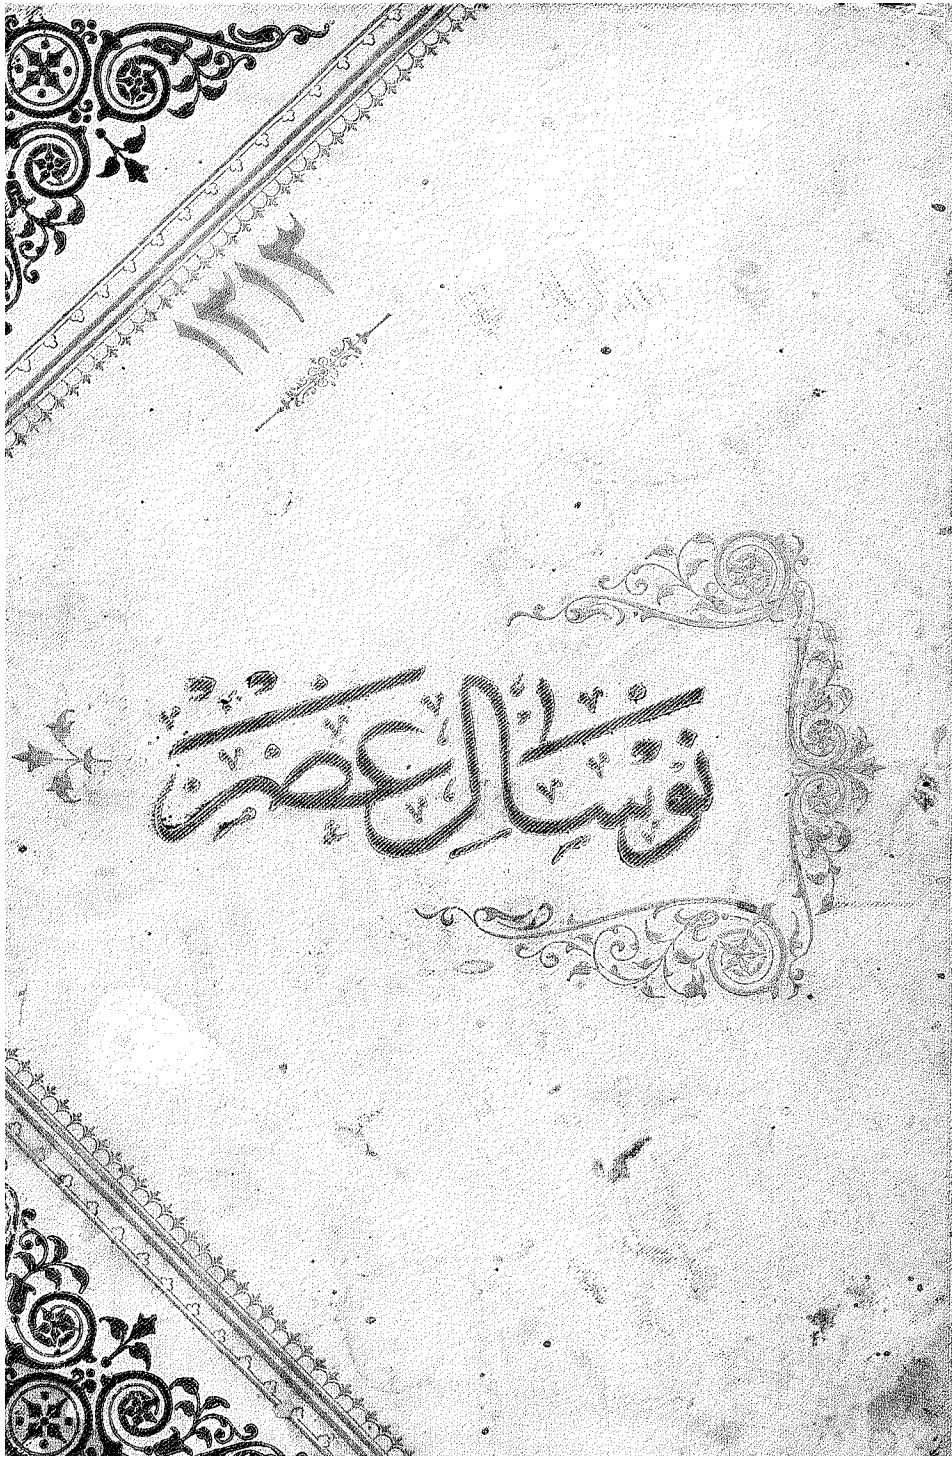 ١٣١٣
نوسال عصر